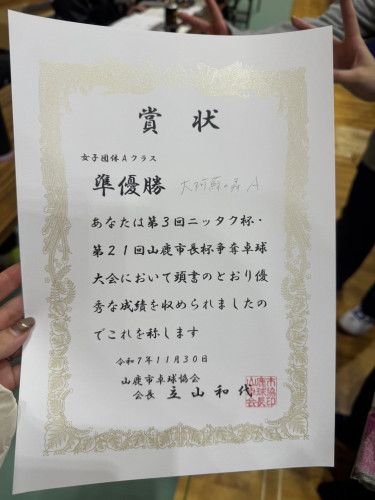 賞状
女子団体Aクラス
準優勝 大村 A
あなたは第3回ニッタク杯・
第21回山鹿市長杯争奪卓球
大会において頭書のとおり優
秀な成績を収められましたの
でこれを称します
令和7年11月30日
山鹿市卓球協会
会長 立山和代